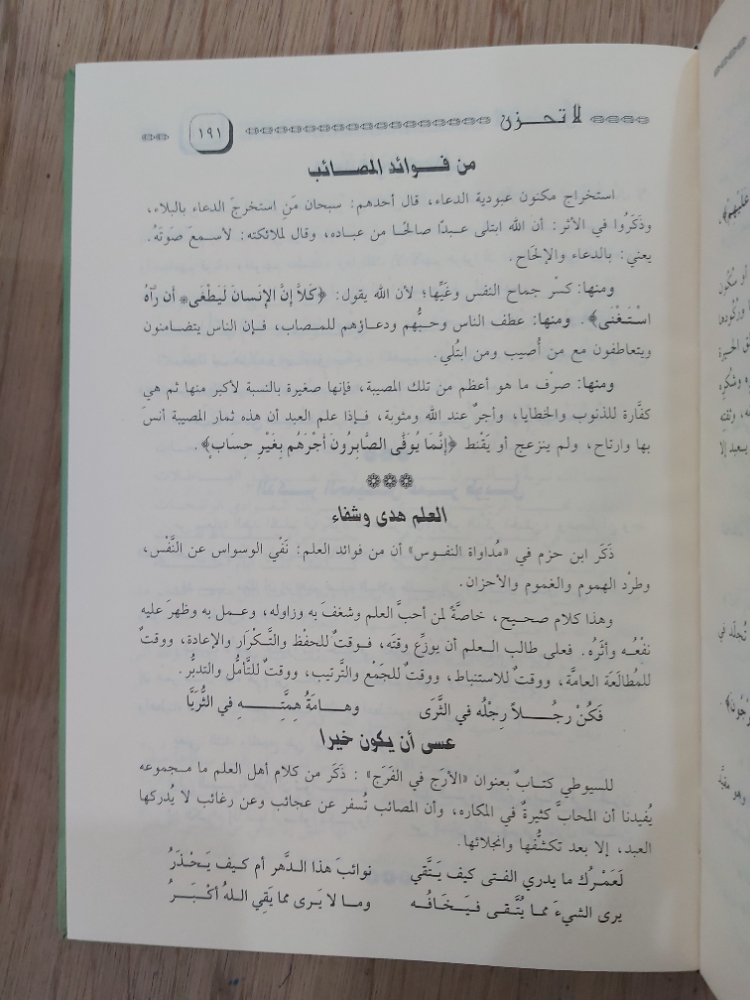 لا تحـــزن
١٩١
من فـوائد المصـائب
استخراج مكنون عبودية الدعاء، قال أحدهم: سبحان مَنِ استخرجَ الدعاء بالبلاء،
وذَكَرُوا في الأثر: أن الله ابتلى عبدًا صالحًا من عباده، وقال لملائكته: لأسمعَ صَوتَهُ.
يعني: بالدعاء والإلحَاح.
ومنها: كسْر جماح النفس وغَيِّها؛ لأن الله يقول: ﴿كَلاَّ إِنَّ الإِنسَانَ لَيَطْغَى * أَن رَّآهُ
اسْتَغْنَى﴾. ومنها: عطف الناس وحبُّهم ودعاؤهم للمـصاب، فـإن الناس يتضـامنون
ويتعاطفون مع من أُصيب ومن ابتُلي.
ومنها: صرفَ ما هو أعظم من تلك المصيبة، فإنها صغيرة بالنسبة لأكبر منها ثم هي
كفَّارة للذنوب والخطايا، وأجرٌ عند الله ومثوبة، فـإذا علم العبد أن هذه ثمار المصيبة أنسَ
بها وارتاح، ولم ينزعج أو يَقْنط ﴿إِنَّمَا يُوَفَّى الصَّابِرُونَ أَجْرَهُم بِغَيْرِ حِسَابٍ﴾.
العلم هدى وشفاء
ذَكَر ابن حزم في «مُداواة النفـوس» أن من فوائد العلم: نَفْي الوسواس عن النَّفْس،
وطرْد الهموم والغموم والأحزان.
وهذا كلام صحيح، خاصَّةً لمن أحبَّ العلم وشغفَ به وزاوله، وعـمل به وظهرَ عليه
نفْعُـه وأثَرُه. فعلى طالب العـلم أن يوزِّع وقتَه، فـوقتٌ للحفظ والتَّـكْرَار والإعادة، ووقتٌ
للمُطالَعَة العامَّة، ووقتٌ للاستنباط، ووقتٌ للجَمْع والتَّرتيب، ووقتٌ للتَّأمُّل والتدبُّر.
فَكُنْ رجُـــلاً رِجْلُه في الثَّرَى وهـامَةُ هِمَّتِـــهِ في الثُّرَيَّا
عسى أن يكون خيرا
للسيوطي كتـابٌ بعنوان «الأرَج في الفَرَج» : ذَكَر من كلام أهل العلم ما مـجموعه
يُفيدنا أن المحابَّ كثيرةٌ في المكاره، وأن المصائب تُسفر عن عجائب وعن رغائب لا يُدركها
العبد، إلا بعد تكشُّفها وانجلائها.
لَعَمْرُك ما يدري الفتى كيف يَتَّقي نوائبَ هذا الدَّهر أم كيف يَـحْذَرُ
يرى الشيءَ مما يُتَّقـى فـيَـخَافُـه ومـا لا يَرى مما يَقِي اللهُ أكْـبَـرُ